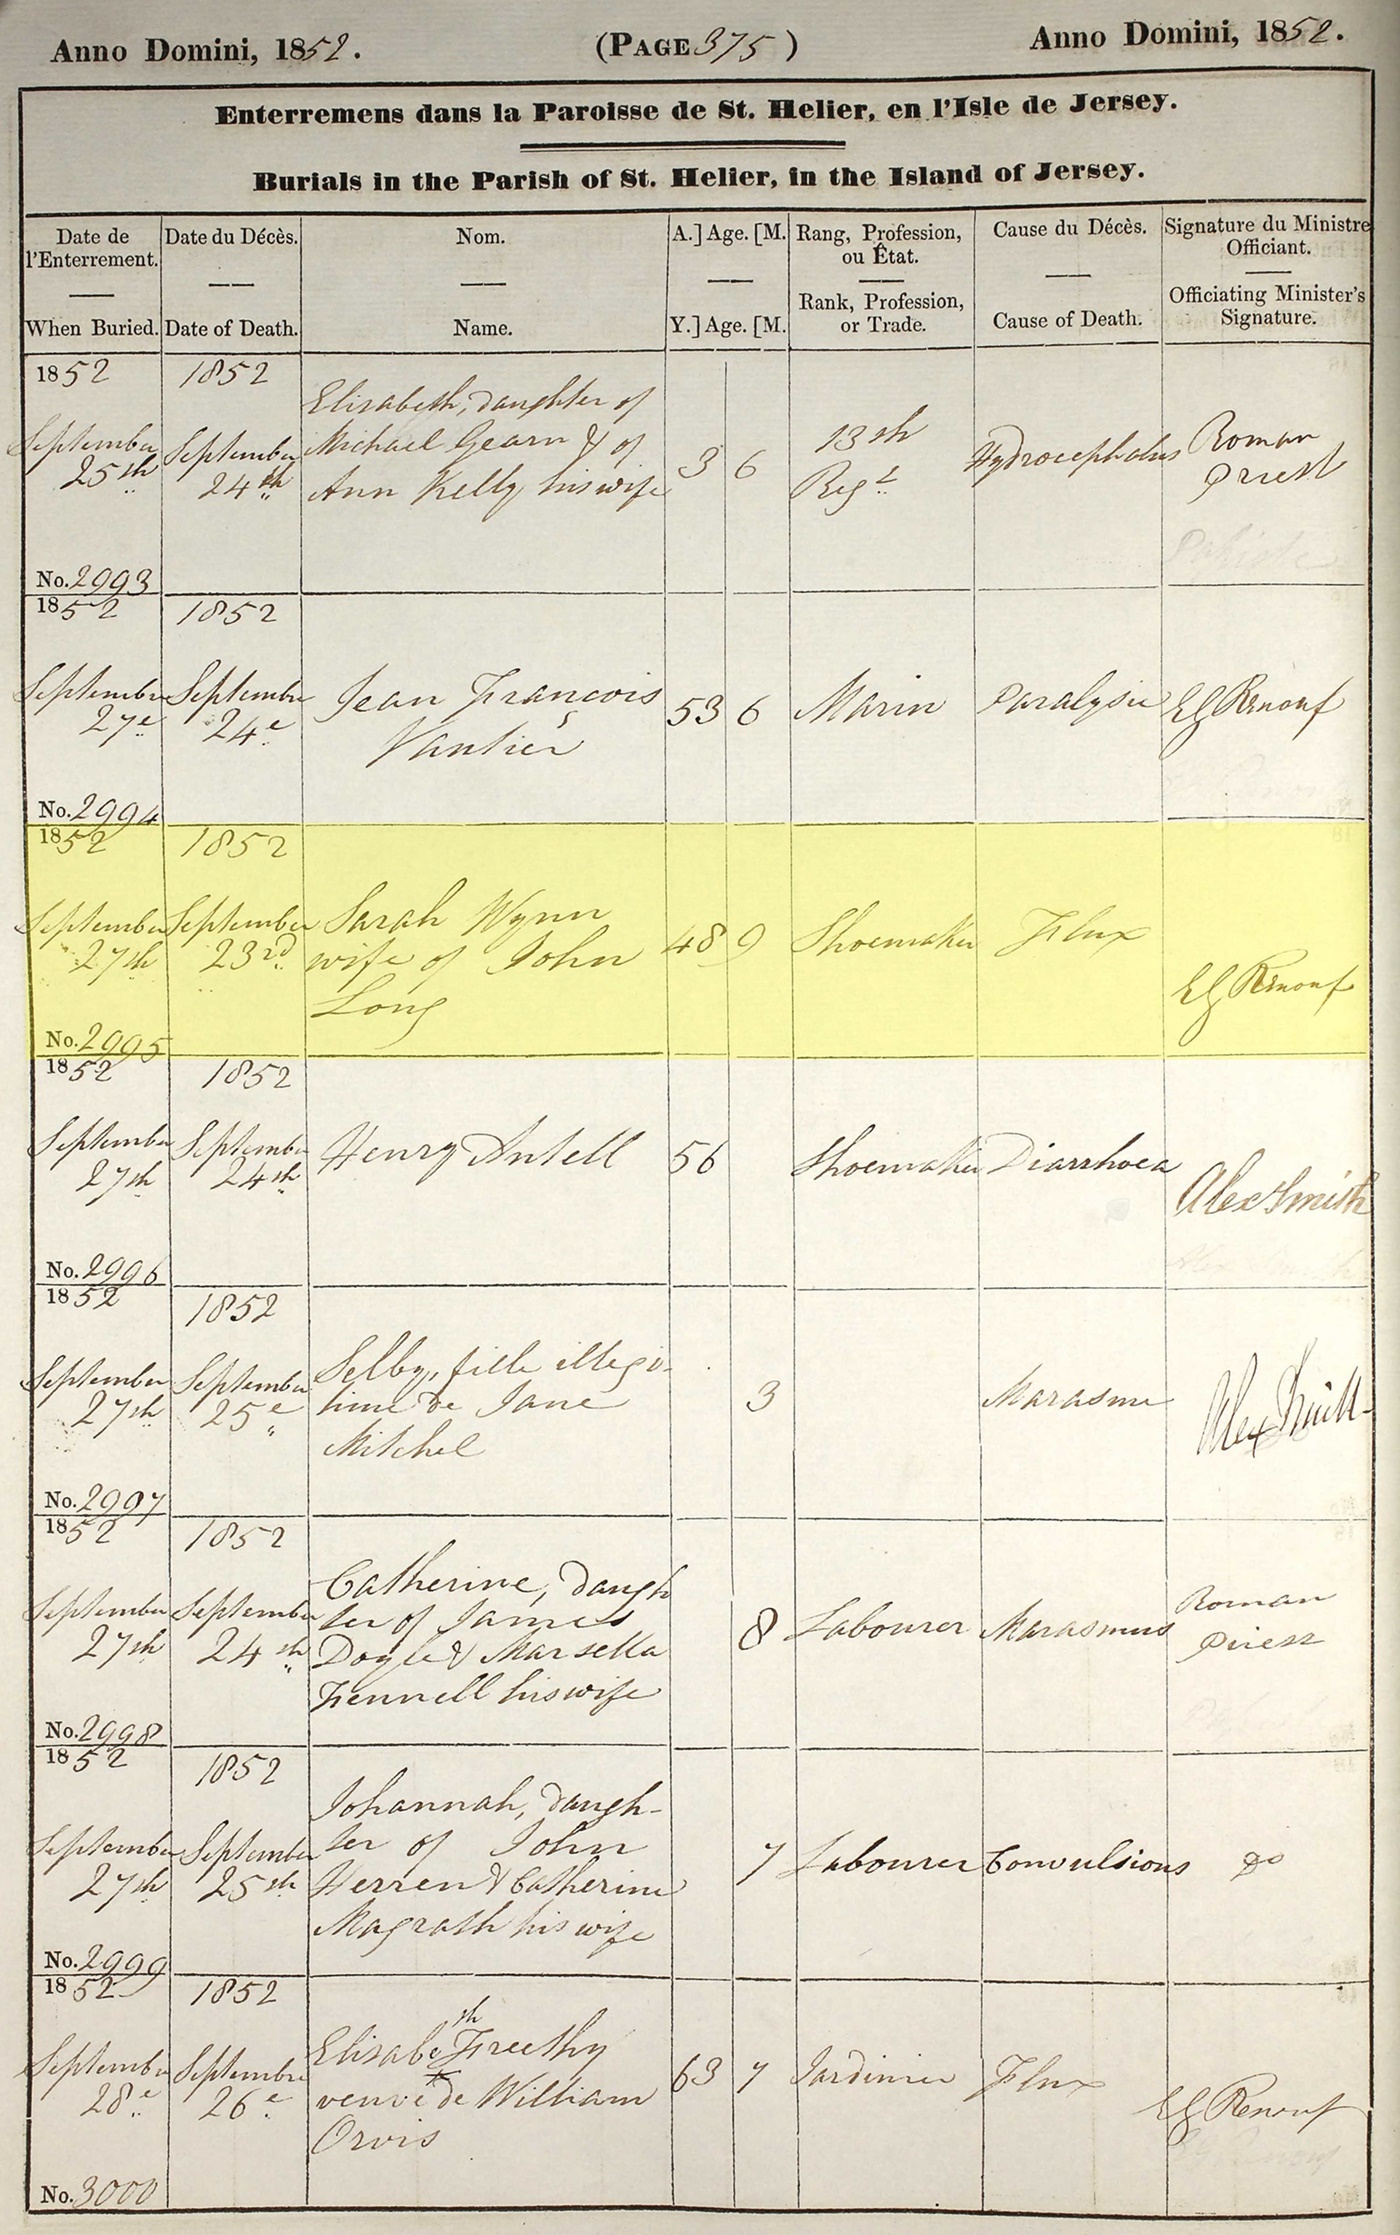 Anno Domini, 1852. (PAGE 375) Anno Domini, 1852.
Enterremens dans la Paroisse de St. Helier, en l'Isle de Jersey.
Burials in the Parish of St. Helier, in the Island of Jersey.
Date de l'Enterrement. Date du Décès. Nom. A.] Age. [M. Rang, Profession, ou État. Cause du Décès. Signature du Ministre Officiant.
When Buried. Date of Death. Name. Y.] Age. [M. Rank, Profession, or Trade. Cause of Death. Officiating Minister's Signature.
1852 1852
September 25th September 24th
Elizabeth, daughter of
Michael Gearn & of
Ann Kelly his wife
3 6 13th Regt Hydrocephalus Roman Priest
No. 2993
1852 1852
Septembre 27e Septembre 24e
Jean Francois
Vautier
53 6 Marin Paralysie EG Renouf
No. 2994
1852 1852
September 27th September 23rd
Sarah Wynn
wife of John
Long
48 9 Shoemaker Flux EG Renouf
No. 2995
1852 1852
September 27th September 24th
Henry Antell
56 Shoemaker Diarrhoea Alex Smith
No. 2996
1852 1852
September 27th September 25e
Selby, fille illegi-
time de Jane
Mitchel
3 Marasme Alex Smith
No. 2997
1852 1852
September 27th September 24th
Catherine, daugh
ter of James
Doyle & Marsella
Fennell his wife
8 Labourer Marasmus Roman Priest
No. 2998
1852 1852
September 27th September 25th
Johannah, daugh-
ter of John
Herren & Catherine
Magrath his wife
7 Labourer Convulsions do
No. 2999
1852 1852
Septembre 28e Septembre 26e
Elisabeth Freethy
veuve de William
Orvis
63 7 Jardinier Flux EG Renouf
No. 3000